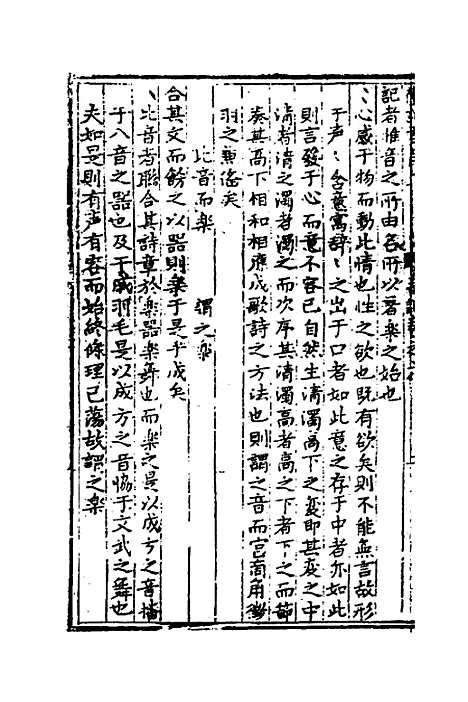 記者推音之所由各所以著樂之始也
丶心感于物而動此情也性之欲也既有欲矣則不能無言故形
于声丶含意寓辞丶之出于口者如此意之存于中者亦如此
則言發于心而意不容已自然生清濁高下之変即其変之中
清者清之濁者濁之而次序其清濁高者高之下者下之而節
奏其高下相和相應成歌詩之方法也則謂之音而宫商角徵
羽之
比音而楽 謂之楽
合其文而飾之以器則楽于是乎成矣
丶比音者聯合其詩章於楽器楽舞也而楽之是以成方之音播
于八音之器也及干戚羽毛是以成方之音恊于文武之舞也
夫如是則有声有容而始終條理已蕩故謂之楽